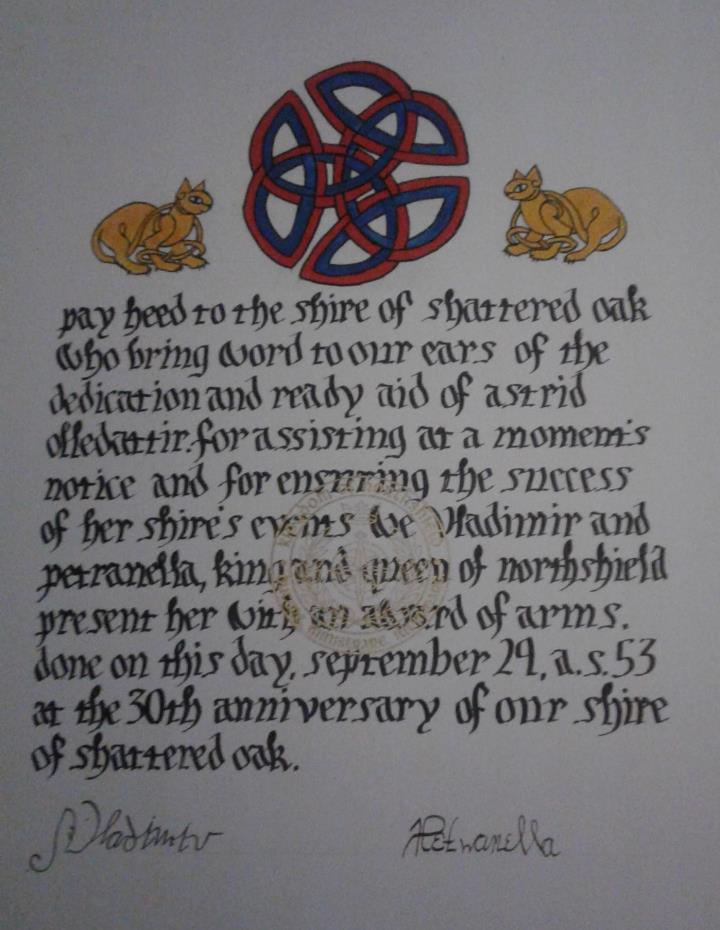 pay heed to the shire of shattered oak
who bring word to our ears of the
dedication and ready aid of astrid
olfedattir. for assisting at a moment's
notice and for ensuring the success
of her shire's events We Vladimir and
petranella, king and queen of northshield
present her with an award of arms.
done on this day, september 29, a.s. 53
at the 30th anniversary of our shire
of shattered oak.
Vladimir
Petranella